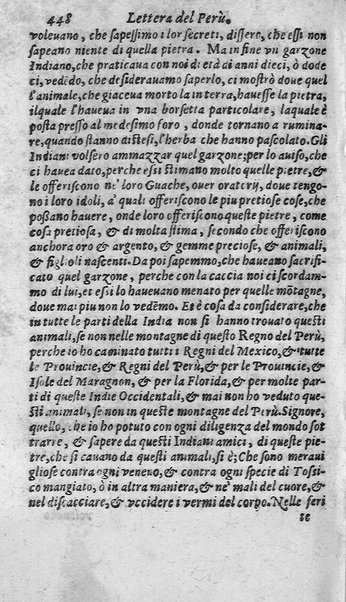 448 Lettera del Perù.
voleuano, che sapessimo i lor secreti, dissero, che essi non
sapeano niente di quella pietra. Ma in fine vn garzone
Indiano, che praticaua con noi di età di anni dieci, ò dode
ci, vedẽdo, che desiderauamo saperlo, ci mostrò doue quel
l'animale, che giaceua morto la in terra, hauesse la pietra,
ilquale l'haueua in vna borsetta particolare, laquale è
posta presso al medesimo foro, donde tornano a rumina-
re, quando stanno distesi, l'herba che hanno pascolato. Gli
Indiani volsero ammazzar quel garzone; per lo auiso, che
ci hauea dato, perche essi stimano molto quelle pietre, &
le offeriscono ne' loro Guache, ouer oratory, doue tengo-
no i loro idoli, a' quali offeriscono le piu pretiose cose, che
possano hauere, onde loro offeriscono queste pietre, come
cosa pretiosa, & di molta stima, secondo che offeriscono
anchora oro & argento, & gemme preciose, & animali,
& figlioli nascenti. Da poi sapemmo, che haueano sacrifi-
cato quel garzone, perche con la caccia noi ci scordam-
mo di lui, et essi lo haueuano menato per quelle mõtagne,
doue mai piu non lo vedẽmo. Et è cosa da considerare, che
in tutte le parti della India non si hanno trouato questi
animali, se non nelle montagne di questo Regno del Perù,
perche io ho caminato tutti i Regni del Mexico, & tutte
le Prouincie, & Regni del Perù, & per le Prouincie, &
Isole del Maragnon, & per la Florida, & per molte par-
ti di queste Indie Occidentali, & mai non ho veduto que-
sti animali, se non in queste montagne del Perù. Signore,
quello, che io ho potuto con ogni diligenza del mondo sot
trarre, & sapere da questi Indiani amici, di queste pie-
tre, che si cauano da questi animali, si è; Che sono meraui
gliose contra ogni veneno, & contra ogni specie di Tossi-
co mangiato, ò in altra maniera, & ne' mali del cuore, &
nel discacciare, & vccidere i vermi del corpo. Nelle feri
te